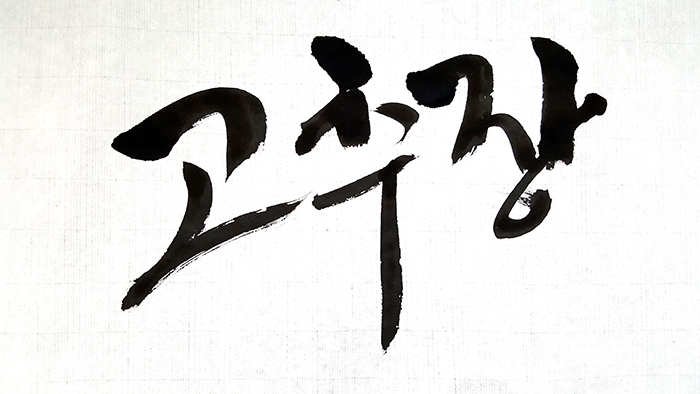 고추장